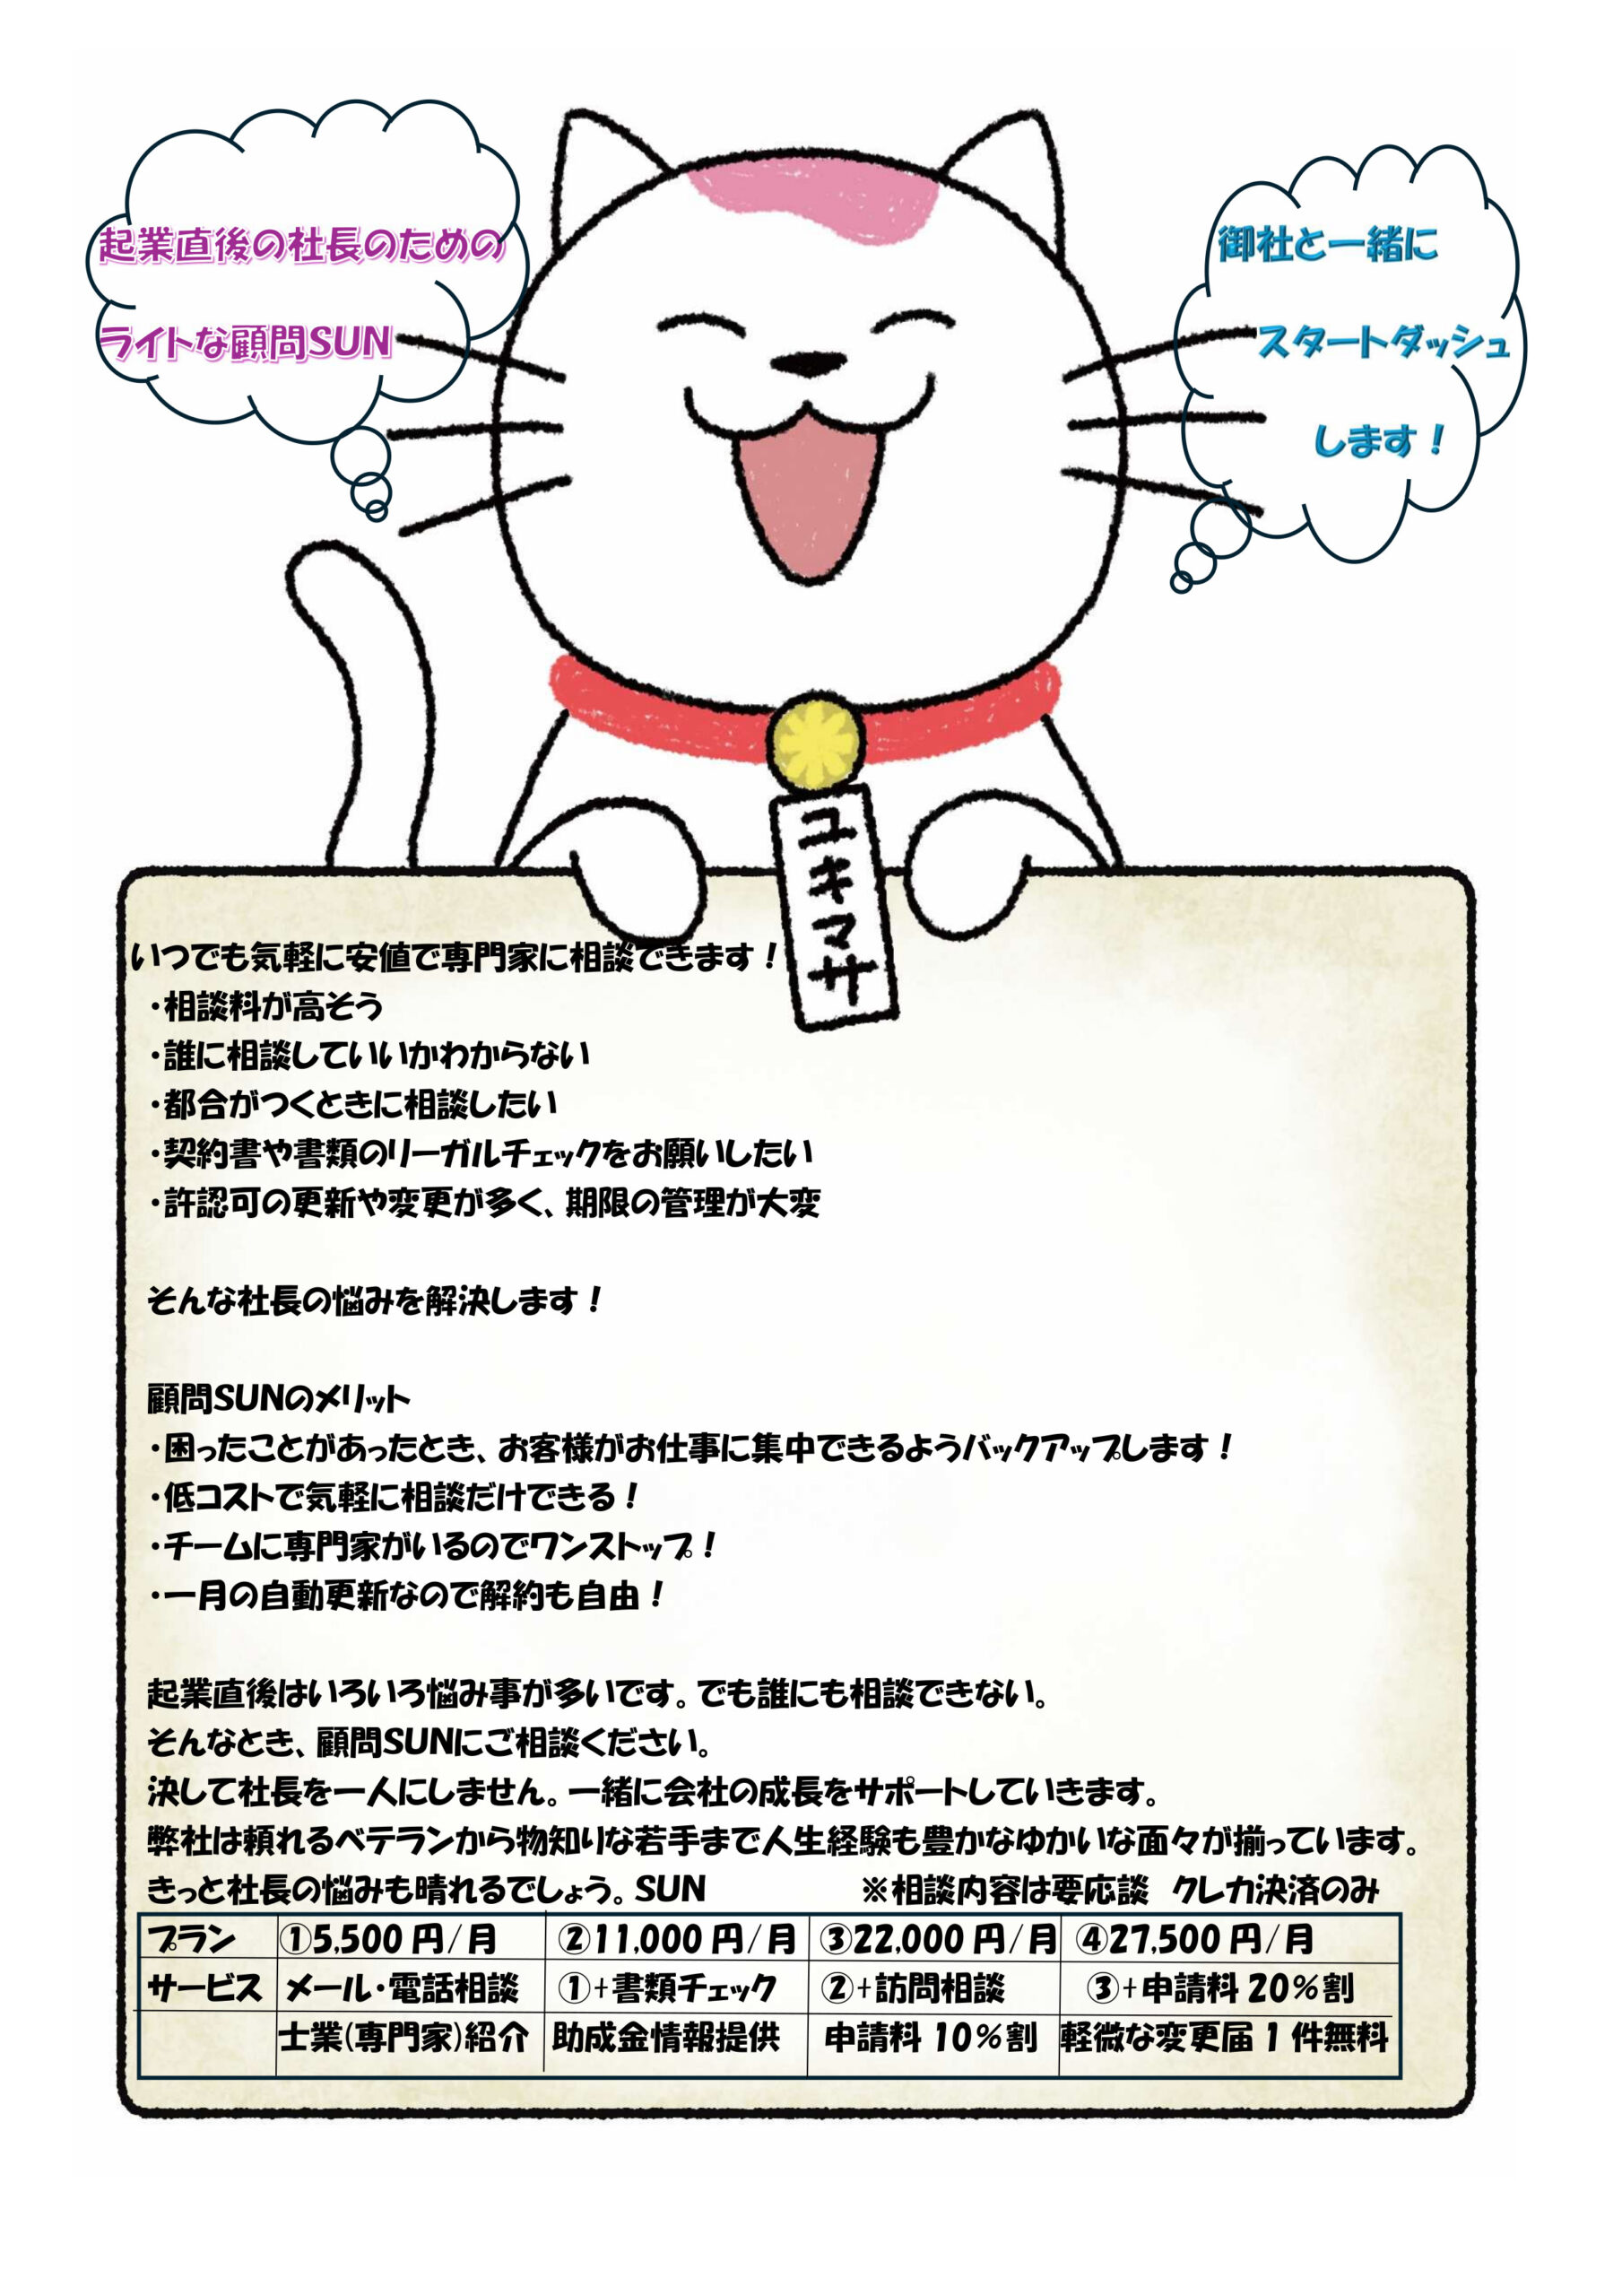 起業直後の社長のための
ライトな顧問SUN
御社と一緒に
スタートダッシュ
します！
ユキマサ
いつでも気軽に安値で専門家に相談できます！
・相談料が高そう
・誰に相談していいかわからない
・都合がつくときに相談したい
・契約書や書類のリーガルチェックをお願いしたい
・許認可の更新や変更が多く、期限の管理が大変
そんな社長の悩みを解決します！
顧問SUNのメリット
・困ったことがあったとき、お客様がお仕事に集中できるようバックアップします！
・低コストで気軽に相談だけできる！
・チームに専門家がいるのでワンストップ！
・一月の自動更新なので解約も自由！
起業直後はいろいろ悩み事が多いです。でも誰にも相談できない。
そんなとき、顧問SUNにご相談ください。
決して社長を一人にしません。一緒に会社の成長をサポートしていきます。
弊社は頼れるベテランから物知りな若手まで人生経験も豊かなゆかいな面々が揃っています。
きっと社長の悩みも晴れるでしょう。SUN ※相談内容は要応談 クレカ決済のみ
プラン ①5,500円/月 ②11,000円/月 ③22,000円/月 ④27,500円/月
サービス メール・電話相談 ①+書類チェック ②+訪問相談 ③+申請料20%割
士業(専門家)紹介 助成金情報提供 申請料10%割 軽微な変更届1件無料